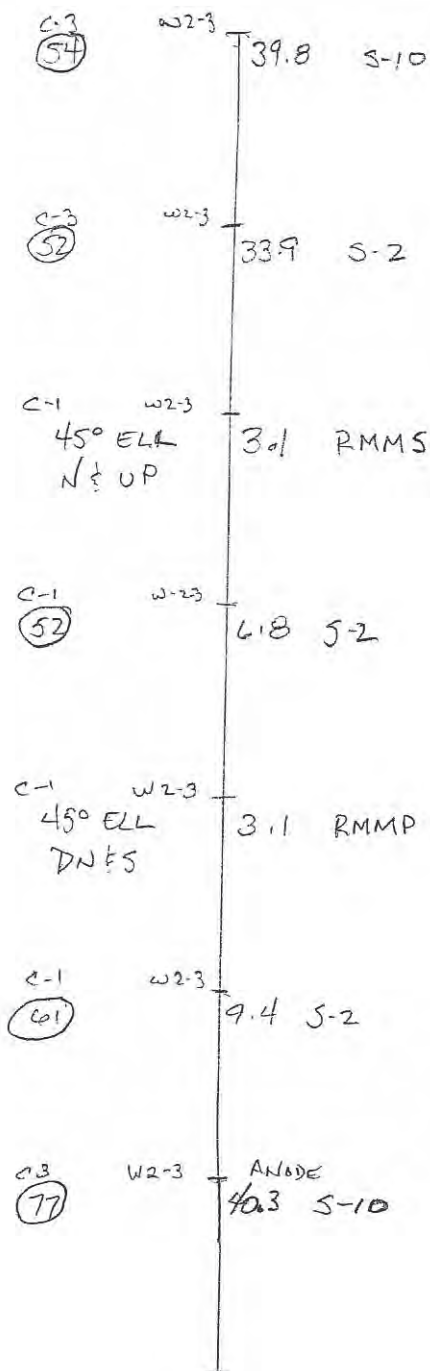 C-3 W2-3
54 39.8 S-10
C-3 W2-3
52 33.9 S-2
C-1 W2-3
45° ELL 3.1 RMMS
N & UP
C-1 W-23
52 6.8 S-2
C-1 W2-3
45° ELL 3.1 RMMP
DN & S
C-1 W2-3
61 9.4 S-2
C3 W2-3 ANODE
77 40.3 S-10